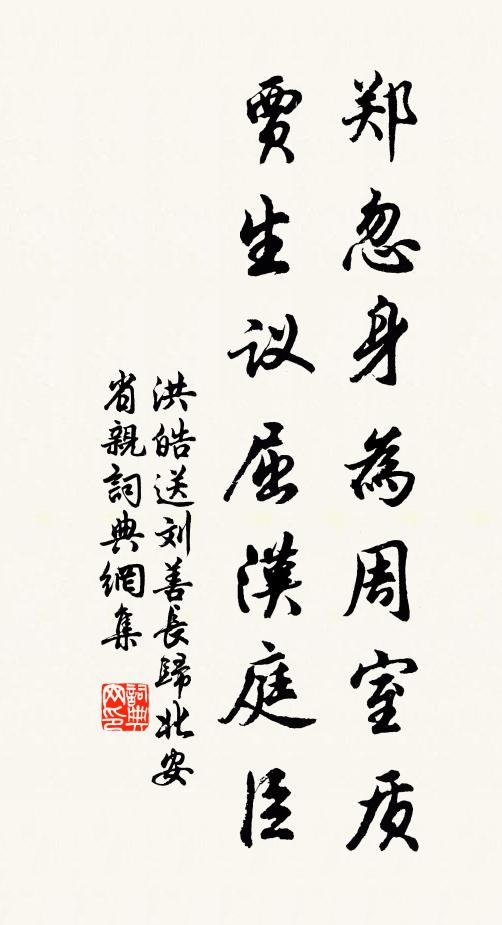 郑忽身為周室质
贾生议屈漢庭臣
洪皓送刘善長歸北安
省親詞典網集
詞典网印